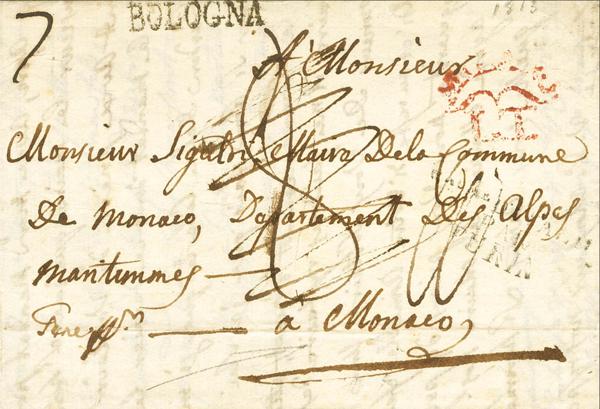 7
BOLOGNA
1813
A Monsieur
L.I.
Monsieur Maire De la Commune
De Monaco, Departement Des Alpes
maritimmes
à Monaco